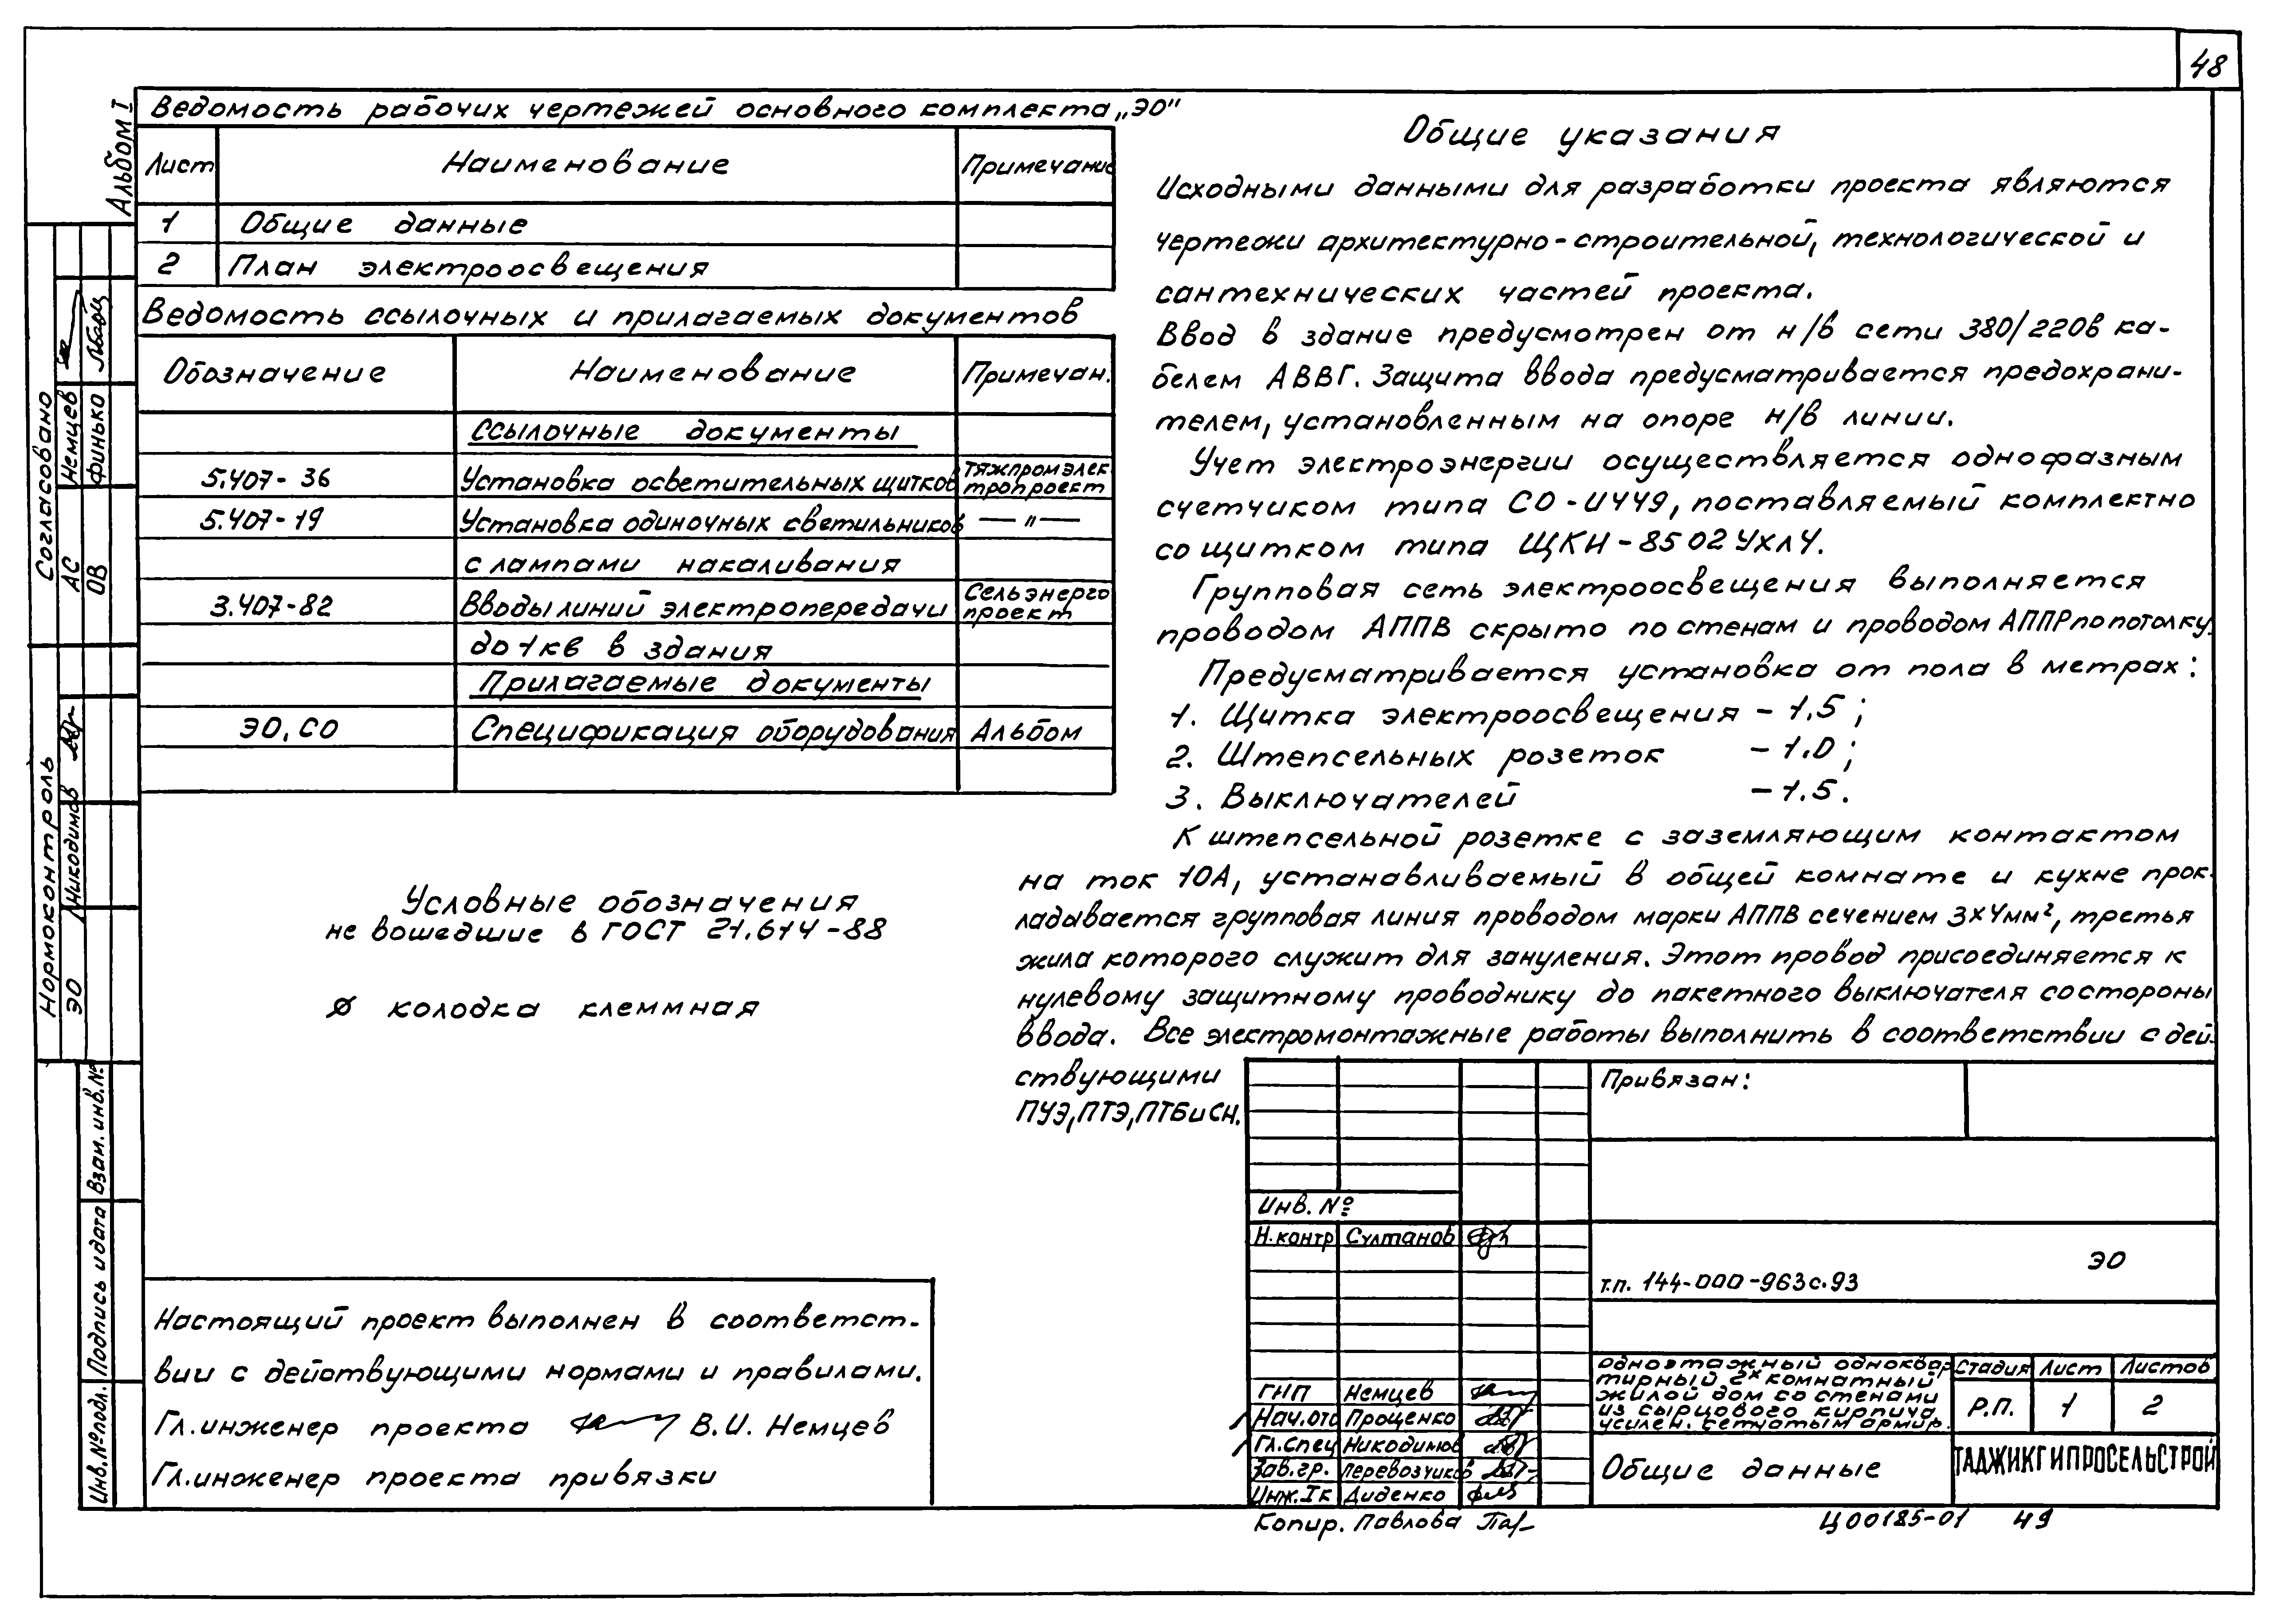 48
Альбом I
Ведомость рабочих чертежей основного комплекта „ЭО"
Лист Наименование Примечание
1 Общие данные
2 План электроосвещения
Ведомость ссылочных и прилагаемых документов
Обозначение Наименование Примечан.
Ссылочные документы
5.407-36 Установка осветительных щитков Тяжпромэлек
тропроект
5.407-19 Установка одиночных светильников — " —
с лампами накаливания
3.407-82 Вводы линий электропередачи Сельэнерго
проект
до 1кв в здания
Прилагаемые документы
ЭО, СО Спецификация оборудования Альбом
Условные обозначения
не вошедшие в ГОСТ 21.614-88
колодка клеммная
Общие указания
Исходными данными для разработки проекта являются
чертежи архитектурно-строительной, технологической и
сантехнических частей проекта.
Ввод в здание предусмотрен от н/в сети 380/220в ка-
белем АВВГ. Защита ввода предусматривается предохрани-
телем, установленным на опоре н/в линии.
Учет электроэнергии осуществляется однофазным
счетчиком типа СО-И449, поставляемый комплектно
со щитком типа ЩКИ-8502УХЛ4.
Групповая сеть электроосвещения выполняется
проводом АППВ скрыто по стенам и проводом АППР по потолку.
Предусматривается установка от пола в метрах:
1. Щитка электроосвещения - 1.5;
2. Штепсельных розеток - 1.0;
3. Выключателей - 1.5.
К штепсельной розетке с заземляющим контактом
на ток 10А, устанавливаемый в общей комнате и кухне прок-
ладывается групповая линия проводом марки АППВ сечением 3×4мм², третья
жила которого служит для зануления. Этот провод присоединяется к
нулевому защитному проводнику до пакетного выключателя со стороны
ввода. Все электромонтажные работы выполнить в соответствии с дей-
ствующими
ПУЭ, ПТЭ, ПТБ и СН.
Согласовано
АС Немцев
ОВ Финько
Нормоконтроль
ЭО Никодимов
Взам. инв. №
Подпись и дата
Инв. № подл.
Настоящий проект выполнен в соответст-
вии с действующими нормами и правилами.
Гл. инженер проекта В.И. Немцев
Гл. инженер проекта привязки
Привязан:
Инв. №
Н.контр Султанов
ЭО
т.п. 144-000-963с.93
ГИП Немцев
Нач.отд Проценко
Гл.спец Никодимов
Зав.гр. Перевозчиков
Инж.Iк Диденко
одноэтажный одноквар
тирный 2х комнатный
жилой дом со стенами
из сырцового кирпича
усилен. сетчатым армир.
Стадия Лист Листов
Р.П. 1 2
Общие данные
ТАДЖИКГИПРОСЕЛЬСТРОЙ
Копир. Павлова
Ц00185-01 49